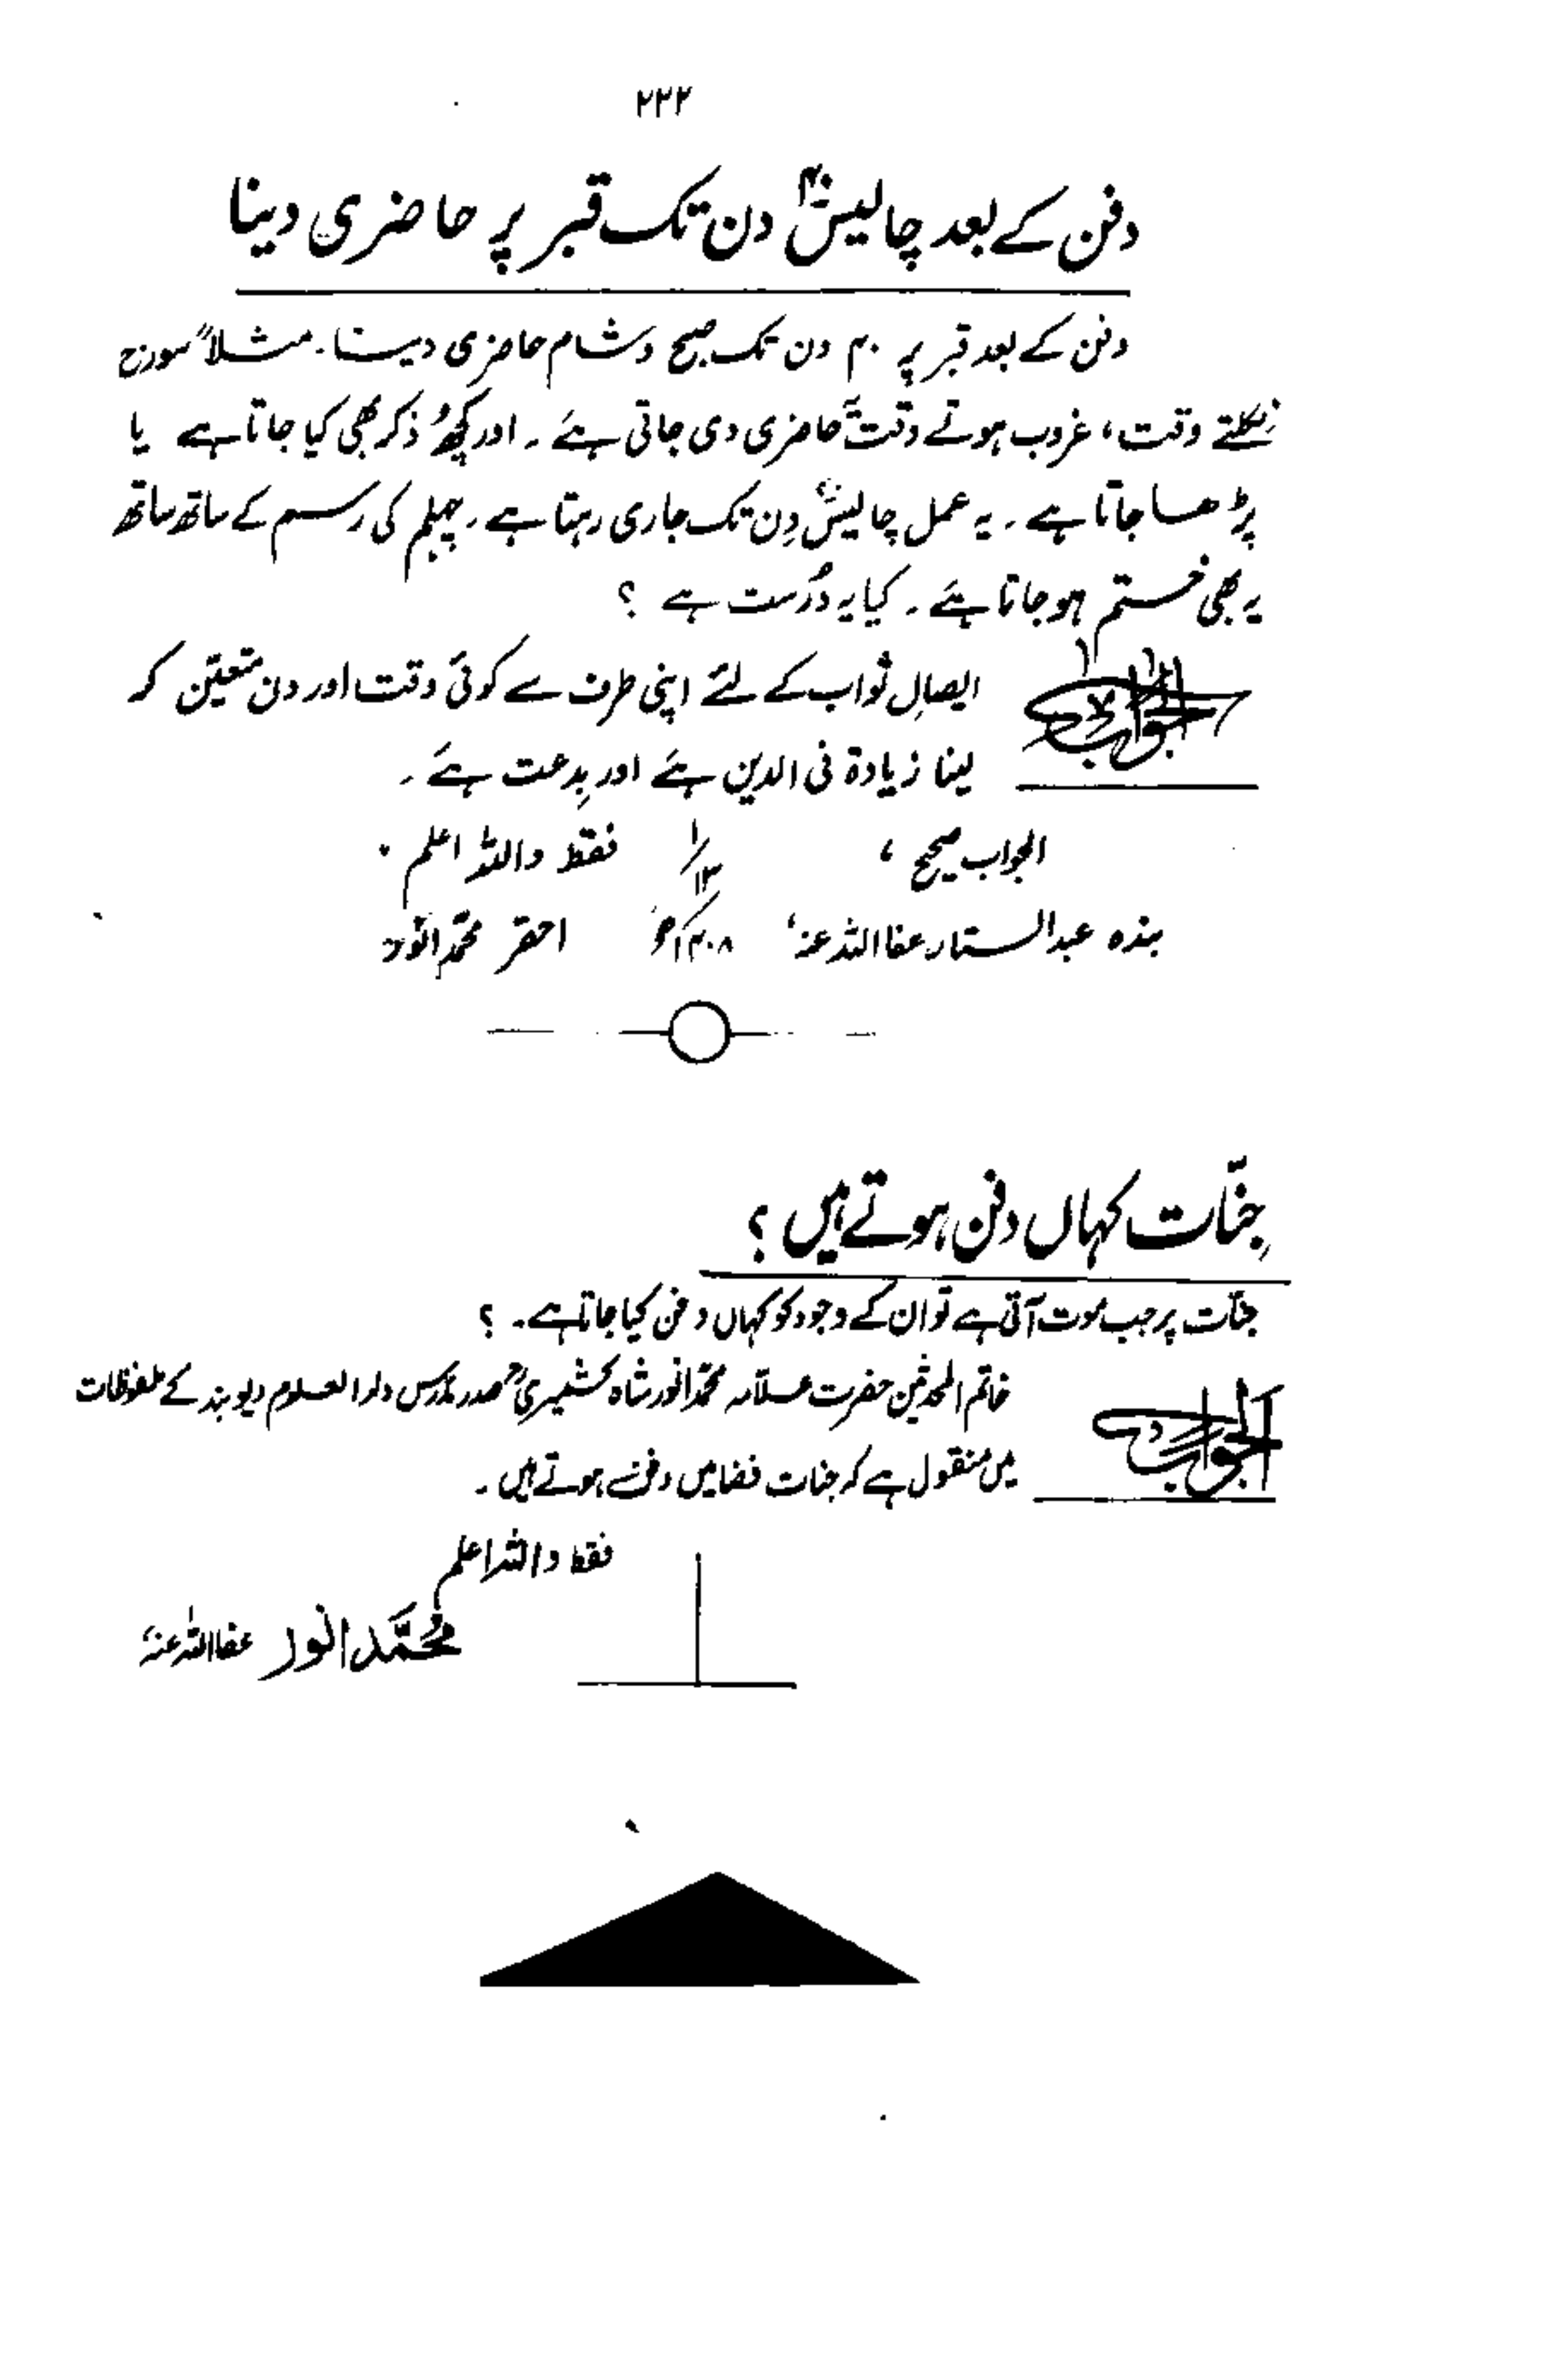 ۲۳۲
دفن کے بعد چالیسؓ۴۰ دن تک قبر پر حاضری دینا
دفن کے بعد قبر پر ۴۰ دن تک صبح و شام حاضری دینا۔ مثلاً سورج
نکلتے وقت، غروب ہوتے وقت حاضری دی جاتی ہے۔ اور کچھ ذکر بھی کیا جاتا ہے یا
پڑھا جاتا ہے۔ یہ عمل چالیس دِن تک جاری رہتا ہے۔ چہلم کی رسم کے ساتھ ساتھ
یہ بھی ختم ہو جاتا ہے۔ کیا یہ دُرست ہے ؟
الجواب ایصالِ ثواب کے لئے اپنی طرف سے کوئی وقت اور دن متعیّن کر
لینا زیادۃ فی الدین ہے اور بِدعت ہے۔
الجواب صحیح، ۱/۱۲ فقط واللہ اعلم۔
بندہ عبدالستار عفااللہ عنہ، ۱۴۰۸ھ احقر محمّد انور
جنّات کہاں دفن ہوتے ہیں ؟
جنّات پر جب موت آتی ہے تو ان کے وجود کو کہاں دفن کیا جاتا ہے۔ ؟
الجواب خاتم المحدثین حضرت علامہ محمّد انور شاہ کشمیریؒ صدر مدرس دارالعلوم دیوبند کے ملفوظات
میں منقول ہے کہ جنات فضا میں دفن ہوتے ہیں۔
فقط واللہ اعلم
مُحَمَّد انور عفااللہ عنہ